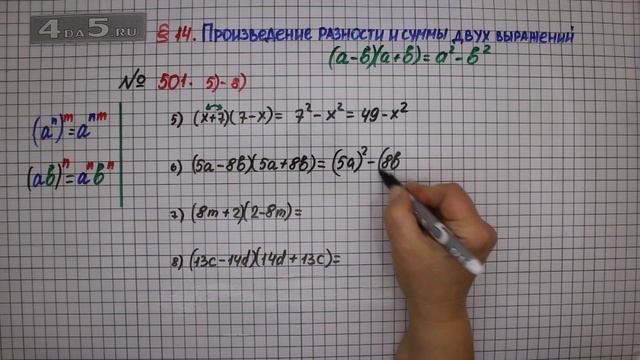 4DA5.RU
§ 14. Произведение разности и суммы двух выражений
(a-b)(a+b)=a²-b²
№ 501. 5)-8)
(aⁿ)ᵐ=aⁿᵐ
(ab)ⁿ=aⁿbⁿ
5) (x+7)(7-x)= 7²-x²=49-x²
6) (5a-8b)(5a+8b)=(5a)²-(8b
7) (8m+2)(2-8m)=
8) (13c-14d)(14d+13c)=